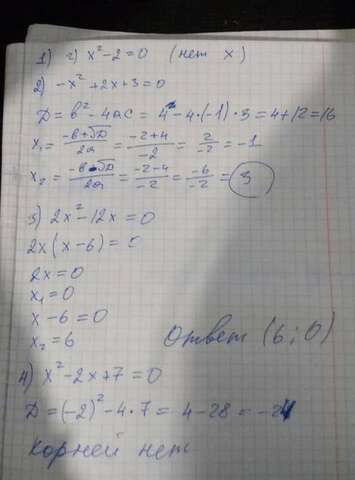 1) г) x² - 2 = 0 (нет x)
2) -x² + 2x + 3 = 0
D = b² - 4ac = 4 - 4·(-1)·3 = 4 + 12 = 16
x₁ = (-b+√D)/2a = (-2+4)/-2 = 2/-2 = -1
x₂ = (-b-√D)/2a = (-2-4)/-2 = -6/-2 = 3
3) 2x² - 12x = 0
2x(x-6) = 0
2x = 0
x₁ = 0
x - 6 = 0
x₂ = 6
Ответ (6; 0)
4) x² - 2x + 7 = 0
D = (-2)² - 4·7 = 4 - 28 = -24
корней нет